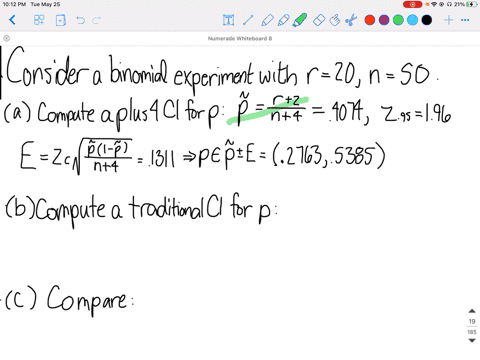 10:12 PM Tue May 25
21%
Numerade Whiteboard 8
Consider a binomial experiment with r=20, n=50.
(a) Compute a plus 4 CI for p: p̃ = (r+2)/(n+4) = .4074, z.95 = 1.96
E = Zc√(p̃(1-p̃)/(n+4)) = .1311 ⇒ p ∈ p̃ ± E = (.2763, .5385)
(b) Compute a traditional CI for p:
(c) Compare:
19
185